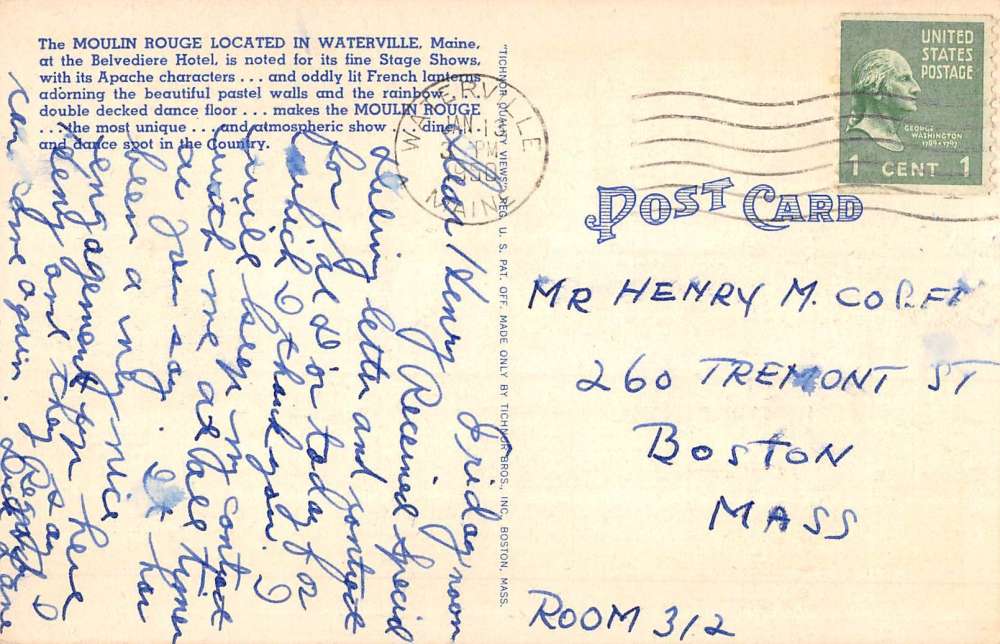 The MOULIN ROUGE LOCATED IN WATERVILLE, Maine,
at the Belvediere Hotel, is noted for its fine Stage Shows,
with its Apache characters . . . and oddly lit French lanterns
adorning the beautiful pastel walls and the rainbow
double decked dance floor . . . makes the MOULIN ROUGE
. . . the most unique . . . and atmospheric show . . . dine
and dance spot in the Country.
Friday noon
Dear Henry
Received Special
Deliery letter and contract
for today for
which I thank you. I
will keep my contract
with me at all times
as you say. It has
been a very nice
engagement for here
Kenny and they say I
can come again.
Regards
"TICHNOR QUALITY VIEWS," REG. U. S. PAT. OFF. MADE ONLY BY TICHNOR BROS., INC., BOSTON, MASS.
WATERVILLE
JAN
PM
MAINE
UNITED
STATES
POSTAGE
GEORGE
WASHINGTON
1789-1797
1 CENT 1
POST CARD
MR HENRY M.
260 TREMONT ST
BOSTON
MASS
ROOM 312